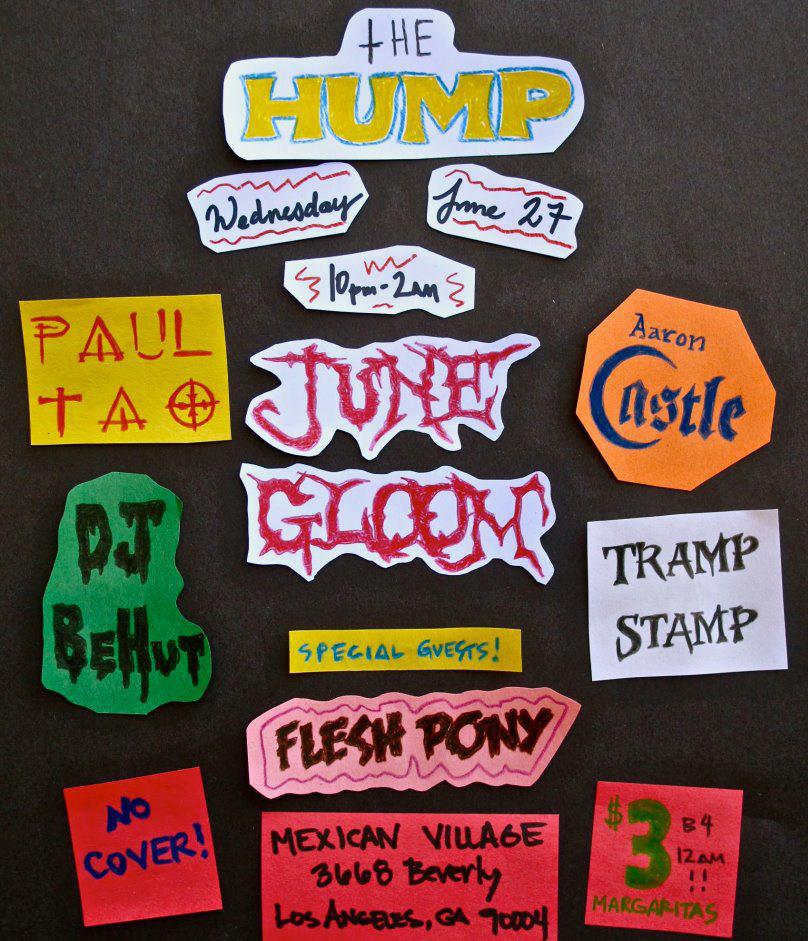 THE
HUMP
Wednesday
June 27
10pm-2AM
PAUL
TAO
JUNE
GLOOM
Aaron
Castle
DJ
BeHut
TRAMP
STAMP
SPECIAL GUESTS!
FLESH PONY
NO
COVER!
MEXICAN VILLAGE
3668 Beverly
Los Angeles, CA 90004
$3 B4
12AM
!!
MARGARITAS